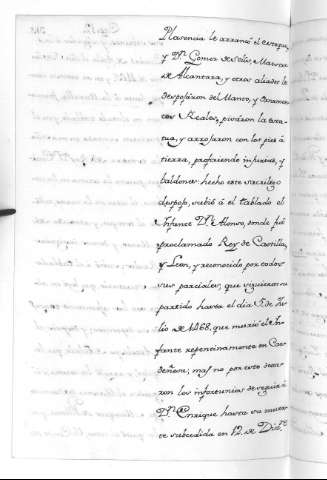 Plasencia le arrancó el estoque,
y Dⁿ. Gomez de Solis, Maestre
de Alcantara, y otros aliados le
despojaron del Manto, y Ornamen
tos Reales, pivaron la esta
tua, y arrojaron con los pies á
tierra, profiriendo injurias, y
baldones: hecho este sacrilego
despojo, subió á el tablado el
Infante Dⁿ. Alonso, donde fué
proclamado Rey de Castilla,
y Leon, y reconocido por todos
sus parciales, que siguieron su
partido hasta el dia 5. de Ju
lio de 1468, que murió el In
fante repentinamente en Car
deñosa; mas no por esto deja
ron los infortunios de seguir á
Dⁿ. Enrique hasta su muer
te subcedida en 12. de Dizᵉ.